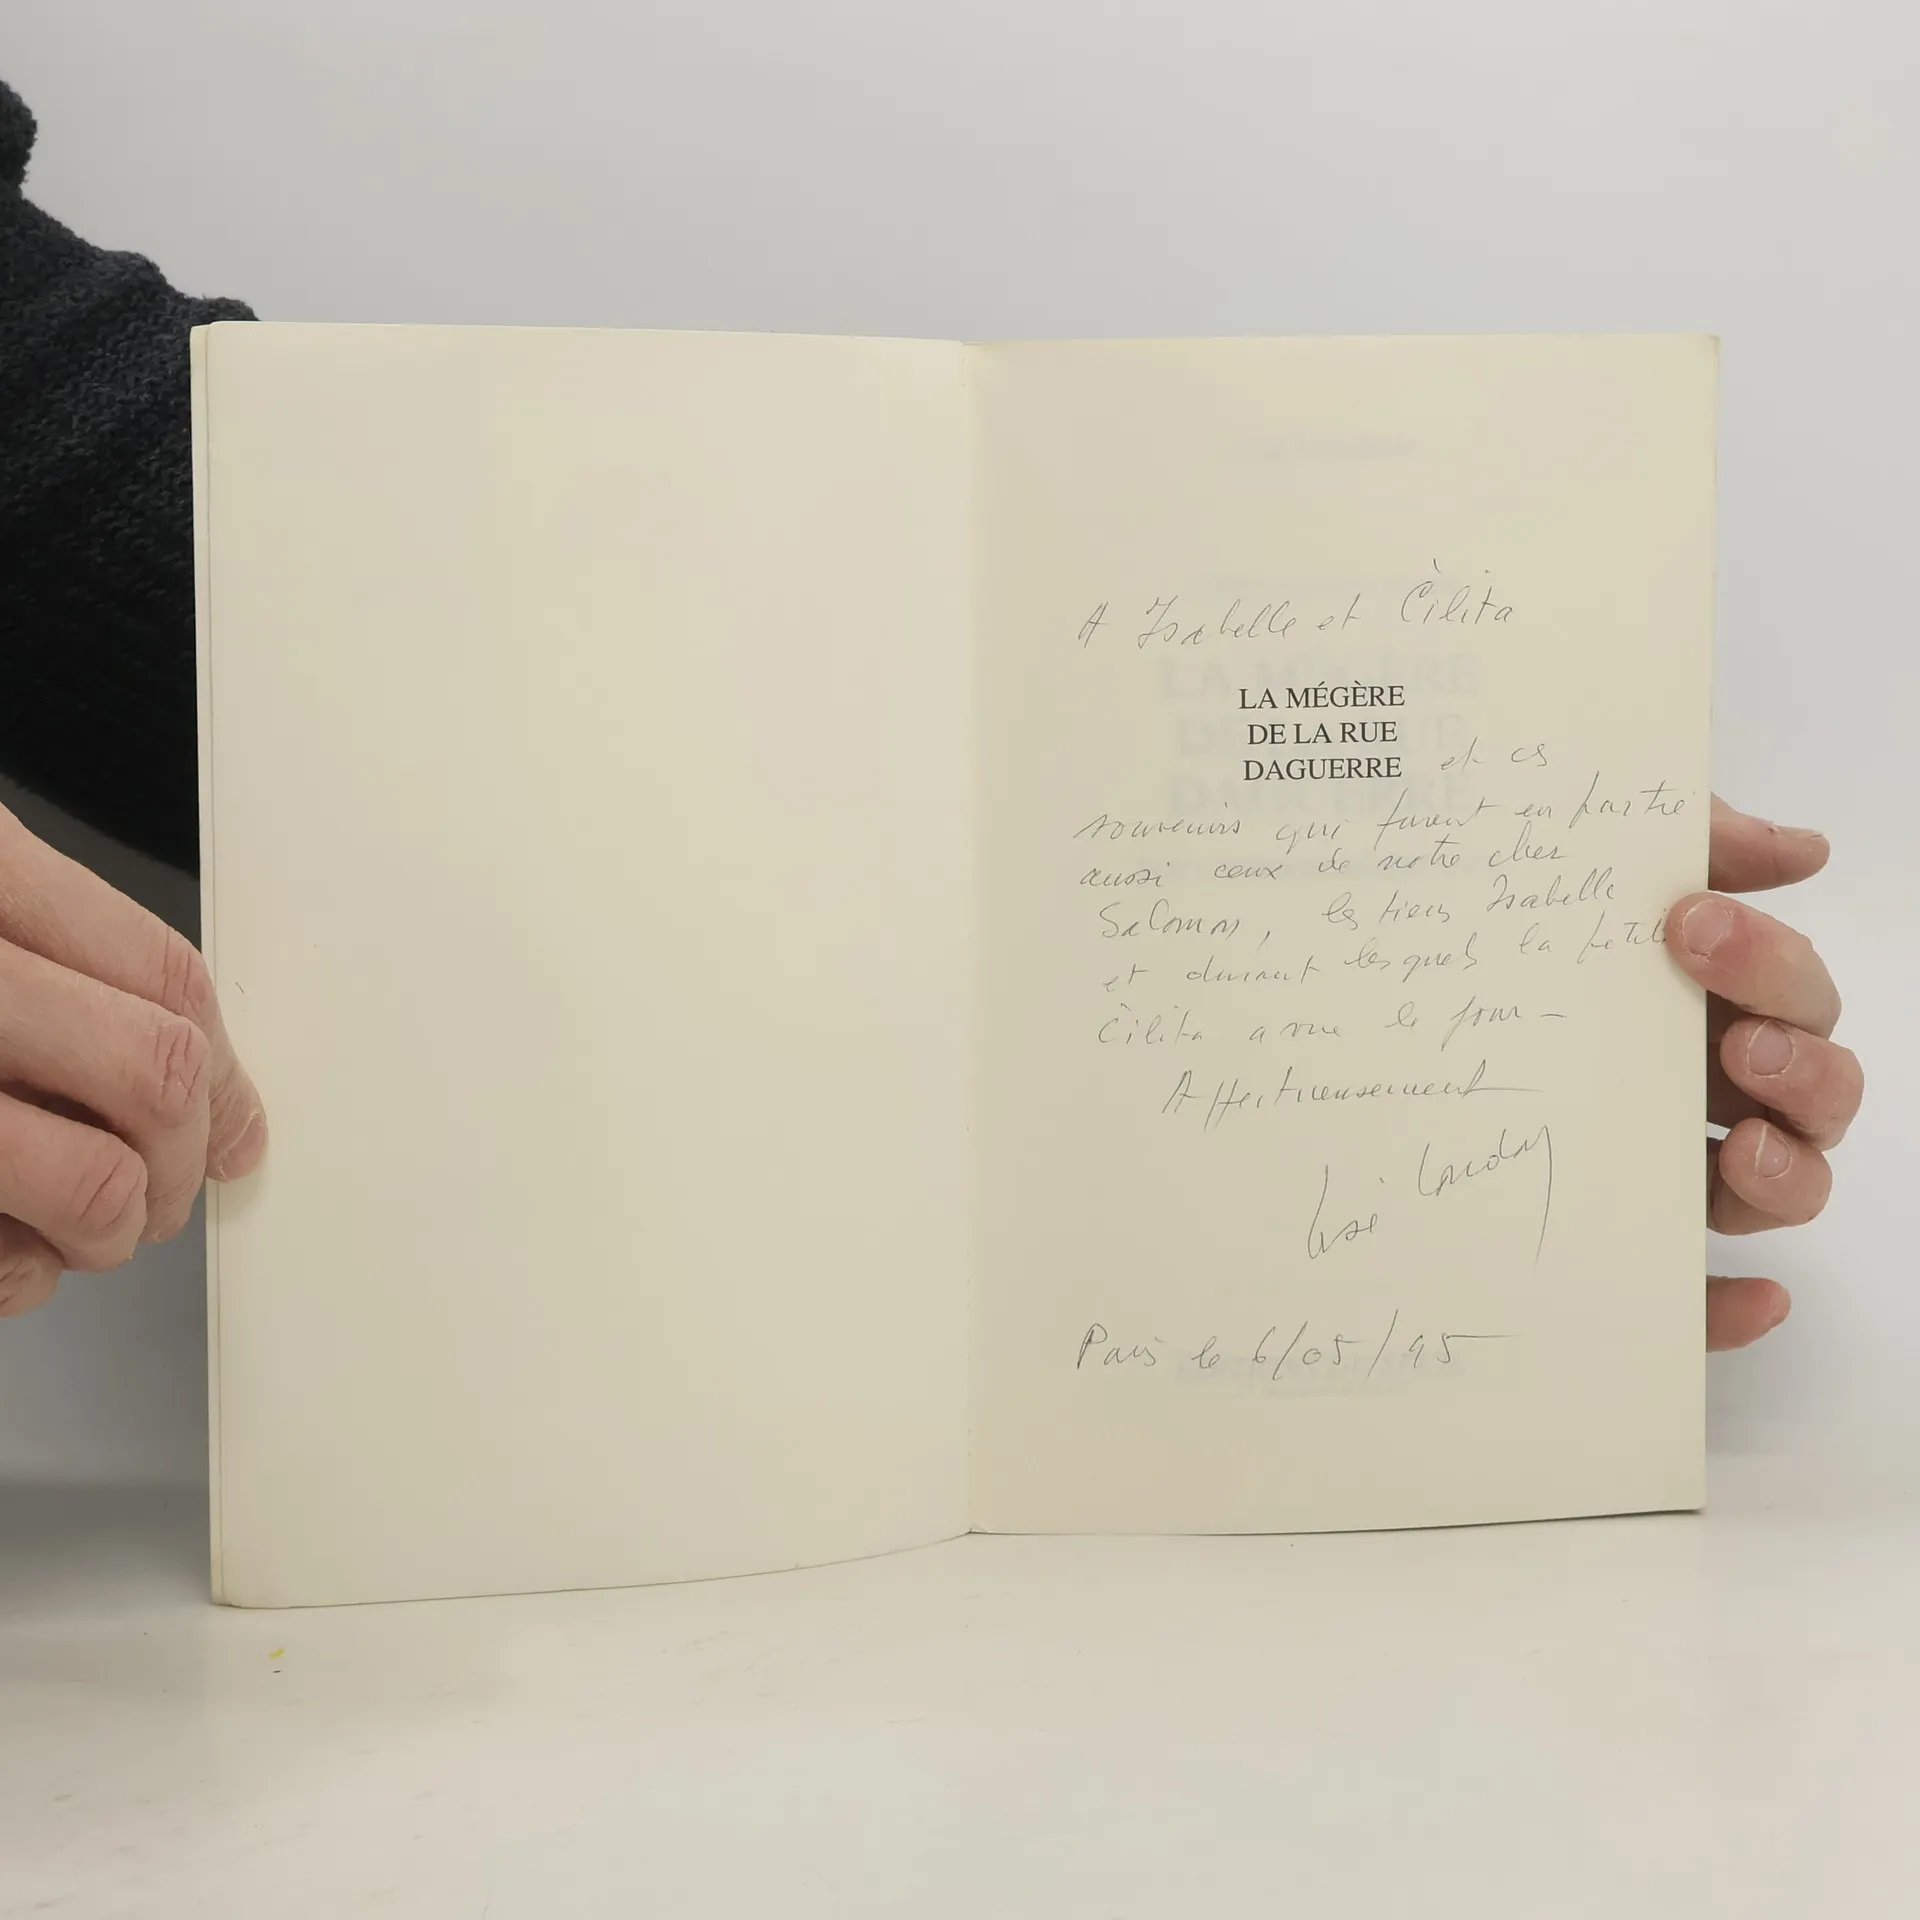 A Isabelle et Cilita
LA MÉGÈRE
DE LA RUE
DAGUERRE
et ces
souvenirs qui furent en partie
aussi ceux de notre cher
Salomon, les tiens Isabelle
et durant lesquels la petite
Cilita a vue le jour -
Affectueusement
José
Paris le 6/05/95